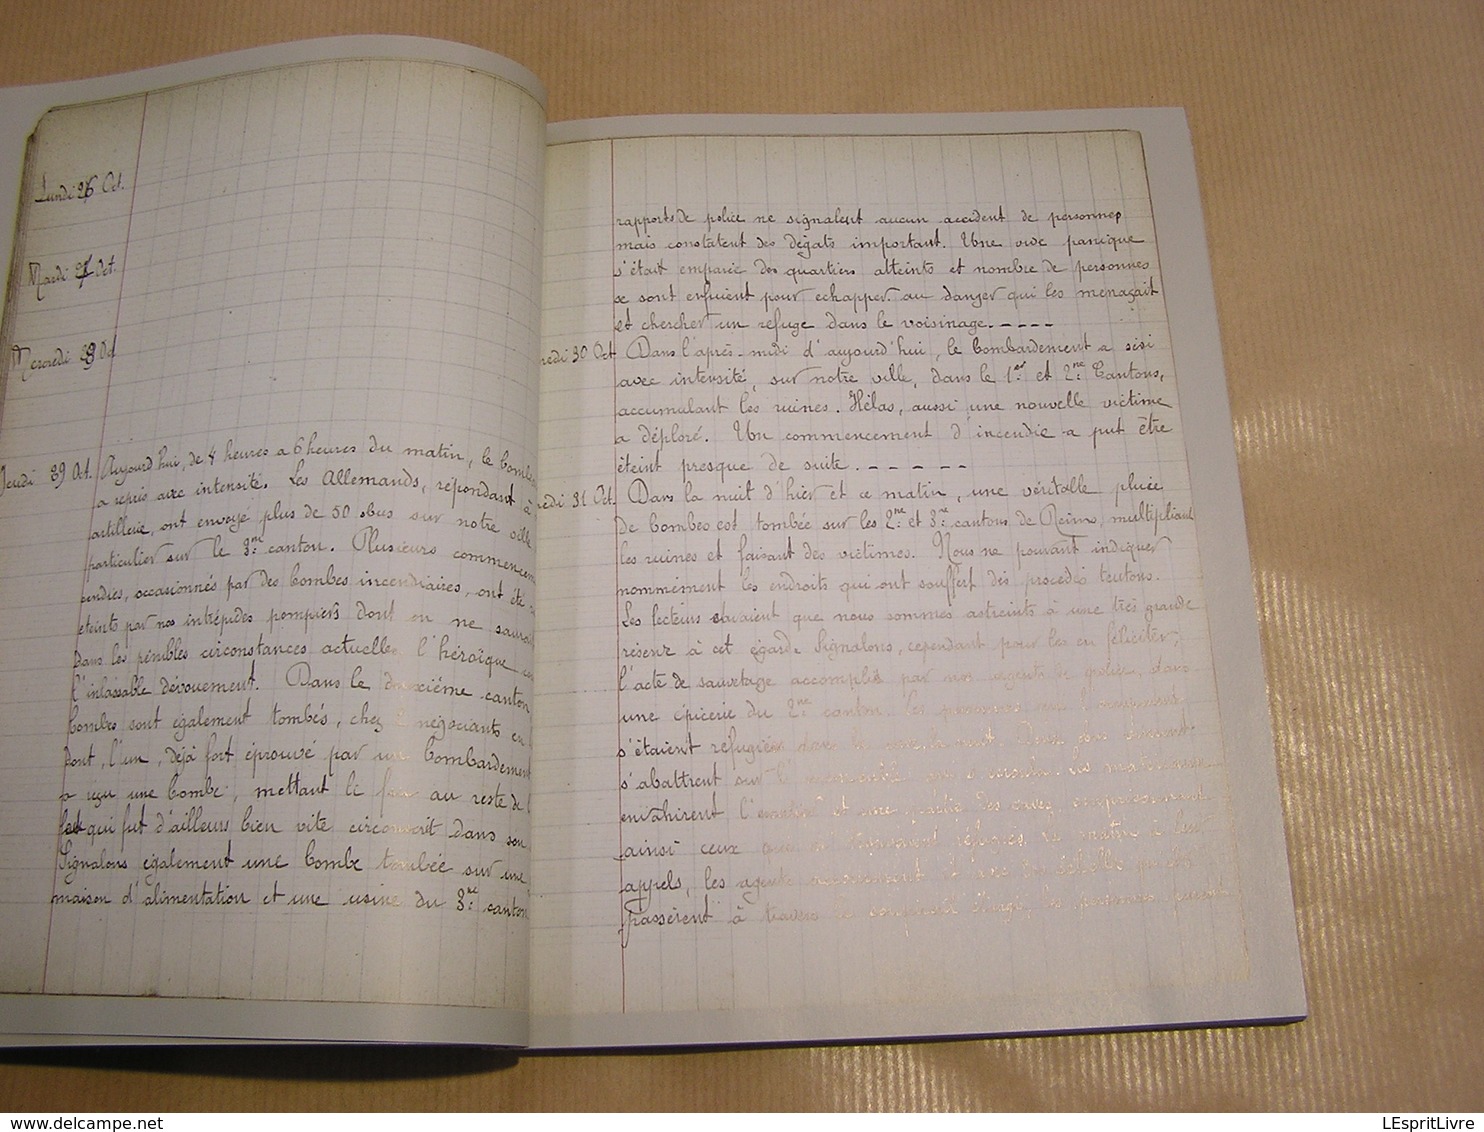 Lundi 26 Oct.
Mardi 27 Oct.
Mercredi 28 Oct
Jeudi 29 Oct. Aujourd'hui, de 4 heures a 6 heures du matin, le bomb
a repris avec intensité. Les Allemands, répondant à
artillerie, ont envoyé plus de 50 obus sur notre ville
particulier sur le 3me canton. Plusieurs commencem
cendies, occasionnés par des bombes incendiaires, ont été
eteints par nos intrépides pompiers dont on ne saurait
dans les pénibles circonstances actuelles l'héroïque
l'inlassable dévouement. Dans le deuxième canton
bombes sont également tombés, chez 2 négociants en
dont, l'un, déjà fort éprouvé par un bombardement
a reçu une bombe, mettant le feu au reste de
qui fut d'ailleurs bien vite circonscrit dans son
Signalons également une bombe tombée sur une
maison d'alimentation et une usine du 3me canton
rapports de police ne signalent aucun accident de personnes
mais constatent des dégats important. Une vive panique
s'était emparée des quartiers atteints et nombre de personnes
se sont enfuient pour echapper au danger qui les menaçait
et chercher un refuge dans le voisinage. - - - -
redi 30 Oct Dans l'après-midi d'aujourd'hui, le bombardement a sévi
avec intensité, sur notre ville, dans le 1er et 2me Cantons,
accumulant les ruines. Hélas, aussi une nouvelle victime
a déploré. Un commencement d'incendie a put être
éteint presque de suite. - - - - - -
edi 31 Oct. Dans la nuit d'hier et ce matin, une véritable pluie
de bombes est tombée sur les 2me et 3me cantons de Reims, multipliant
les ruines et faisant des victimes. Nous ne pouvant indiquer
nommément les endroits qui ont souffert des procedés teutons.
Les lecteurs savaient que nous sommes astreints à une très grande
réserve à cet égard. Signalons, cependant pour les en féliciter,
l'acte de sauvetage accomplis par nos agents de police, dans
une épicerie du 2me canton. Les personnes
s'étaient refugiées dans les
s'abattrent sur le
envahirent l' et une partie des caves, emprisonnant
ainsi ceux qui se trouvaient réfugiés. Le matin à leur
appels, les agents
passèrent à travers le soupirail élargi, les personnes
LEspritLivre